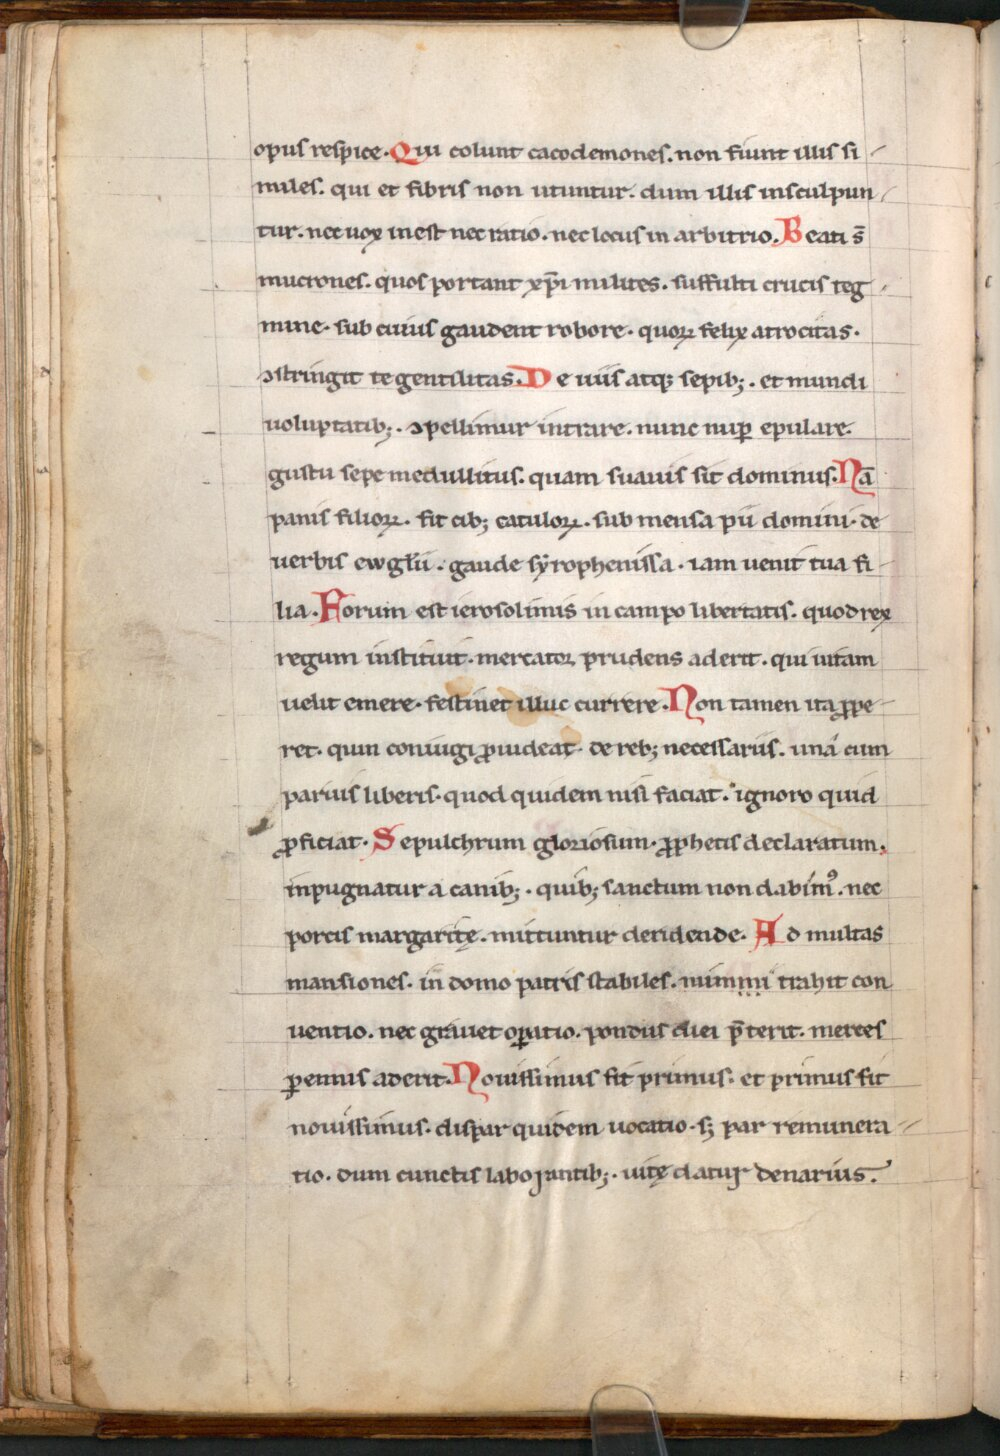 opus respice. Qui colunt cacodemones. non fiunt illis si-
miles. qui et fibris non utuntur. dum illis insculpun-
tur. nec uox inest nec ratio. nec locus in arbitrio. Beati s̄
mucrones. quos portant xp̄i milites. suffulti crucis teg-
mine. sub cuius gaudent robore. quoꝝ felix atrocitas.
ꝯstringit te gentilitas. De uiis atq; sepib;. et mundi
uoluptatib;. ꝯpellimur intrare. nunc nup̄ epulare.
gustu sepe medullitus. quam suauis sit dominus. Nā
panis filioꝝ. fit cib; catuloꝝ. sub mensa pii domini. de
uerbis ewgl̄ii. gaude syrophenissa. iam uenit tua fi-
lia. Forum est ierosolimis in campo libertatis. quod rex
regum instituit. mercator prudens aderit. qui uitam
uelit emere. festinet illuc currere. Non tamen ita ꝓpe-
ret. quin coniugi ꝓuideat. de reb; necessariis. unā cum
paruis liberis. quod quidem nisi faciat. ignoro quid
ꝓficiat. Sepulchrum gloriosum. ꝓphetis declaratum.
inpugnatur a canib;. quib; sanctum non dabim⁹. nec
porcis margaritę. mittuntur deridende. Ad multas
mansiones. in domo patris stabiles. nummi trahit con
uentio. nec grauet oꝑatio. pondus diei p̄terit. merces
ꝑennis aderit. Nouissimus fit primus. et primus fit
nouissimus. dispar quidem uocatio. s; par remunera-
tio. dum cunctis laborantib;. uitę datur denarius.